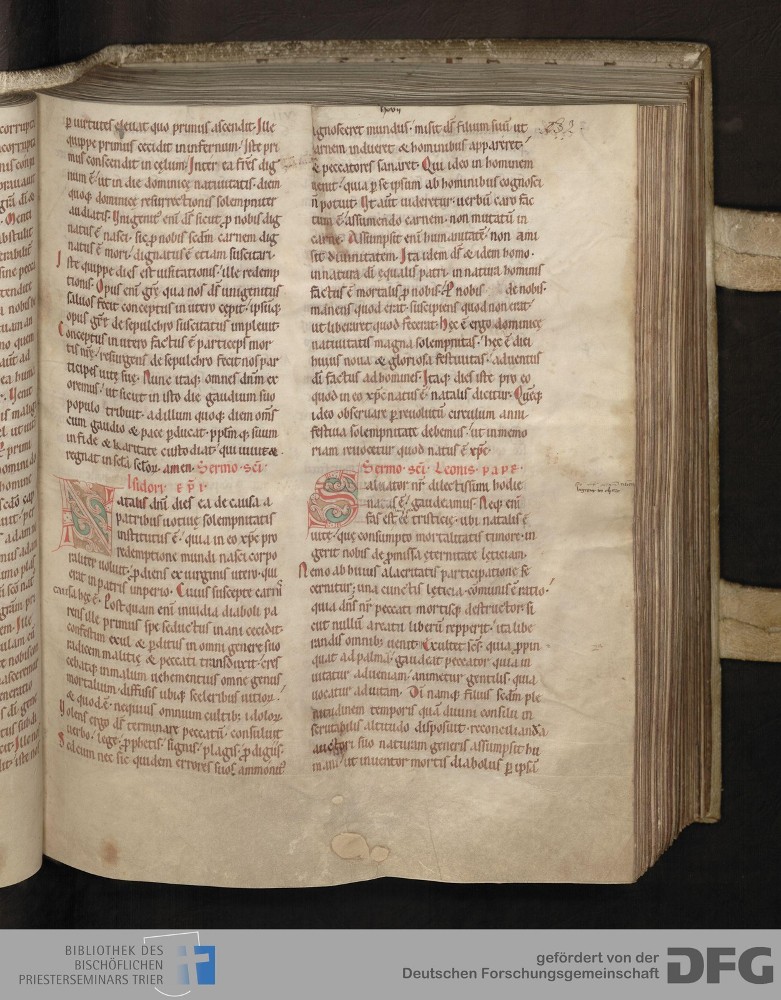 ꝑ uirtutes eleuat quo primus ascendit· Ille
quippe primus cecidit in infernum· Iste pri
mus conscendit in cęlum· Inter ea fr̄es dig
num ē· ut in die dominicę natiuitatis· diem
quoq; dominicę resurrectionis solempniter
audiatis· Vnigenit᷒ eni ds̄ sicut ꝓ nobis dig
natus ē nasci· sic ꝓ nobis scd̄m carnem dig
natus ē mori· dignatus ē etiam suscitari·
Iste quippe dies est uisitationis· ille redemp
tionis· Opus eni
qua nos ds̄ unigenitus
saluos fecit conceptus in utero cępit· ipsūq;
opus
de sepulchro suscitatus impleuit·
Conceptus in utero factus ē particeps mor
tis nr̄ę· resurgens de sepulchro fecit nos par
ticipes uitę suę· Nunc itaq; omnes dn̄m ex
oremus· ut sicut in isto die gaudium suo
populo tribuit· ad illum quoq; diem om̄s
cum gaudio & pace ꝑducat· ppl̄m q; suum
in fide & karitate custodiat· qui uiuit &
regnat in scl̄a sclo℞· amen· Sermo· sc̄i·
Isidori· EPI·
Natalis dn̄i dies ea de causa a
patribus uotiuę solempnitatis
institutus ē· quia in eo xp̄c pro
redemptione mundi nasci corpo
raliter uoluit· ꝓdiens ex uirginis utero· qui
erat in patris imperio· Cuius susceptę carn̄
causa hęc ē· Postquam eni inuidia diaboli pa
rens ille primus spe seductus inani cecidit·
confestim exul & ꝑditus in omni genere suo
radicem malitię & peccati transduxit· cres
cebatq; in malum uehementius omne genus
mortalium· diffusis ubiq; sceleribus
& quod ē· nequius omnium cultib; idolo℞·
Volens ergo ds̄ terminare peccatū· consuluit
uerbo· lege· ꝓphetis· signis· plagis· ꝓdigiis·
Sed cum nec sic quidem errores suos ammonit᷒
ignosceret mundus· misit ds̄ filium suū ut
carnem indueret & hominibus appareret·
& peccatores sanaret· Qui ideo in hominem
uenit· quia ꝑ se ipsum ab hominibus cognosci
n̄ potuit· Vt aut̄ uideretur· uerbū caro fac
tum ē assumendo carnem· non mutatū in
carne· Assumpsit eni humanitatē· non ami
sit diuinitatem· Ita idem ds̄ & idem homo·
in natura di ęqualis patri· in natura hominis
factus ē mortalis ꝓ nobis·
nobis de nobis·
manens quod erat· suscipiens quod non erat·
ut liberaret quod fecerat· Hęc ē ergo dominicę
natiuitatis magna solempnitas· hęc ē diei
huius noua & gloriosa festiuitas· aduentus
di factus ad homines· Itaq; dies iste pro eo
quod in eo xp̄c natus ē· natalis dicitur· Quēq;
ideo obseruare ꝑ reuolutū circulum anni
festiua solempnitate debemus· ut in memo
riam reuocetur quod natus ē xp̄c·
Sermo· sc̄i· Leonis· PAPE·
Saluator nr̄ dilectissimi hodie
natus ē· gaudeamus· Neq; eni
fas est eē tristicię· ubi natalis ē
uitę· quę consumpto mortalitatis timore· in
gerit nobis de ꝓmissa ęternitate lęticiam·
Nemo ab huius alacritatis participatione se
cernitur· una cunctis lęticia· comunis ē ratio·
quia dn̄s nr̄ peccati mortisq; destructor· si
cut nullū a reatu liberū repperit· ita libe
randis omnib; uenit· Exultet sc̄s· quia ꝓpin
quat ad palmā· gaudeat peccator quia in
uitatur ad ueniam· animetur gentilis quia
uocatur ad uitam· Di namq; filius scd̄m ple
nitudinem temporis quā diuini consilii in
scrutabilis altitudo disposuit· reconciliandā
auctori suo naturam generis assumpsit hu
mani· ut inuentor mortis diabolus ꝑ ipsā
BIBLIOTHEK DES
BISCHÖFLICHEN
PRIESTERSEMINARS TRIER
gefördert von der
Deutschen Forschungsgemeinschaft
DFG